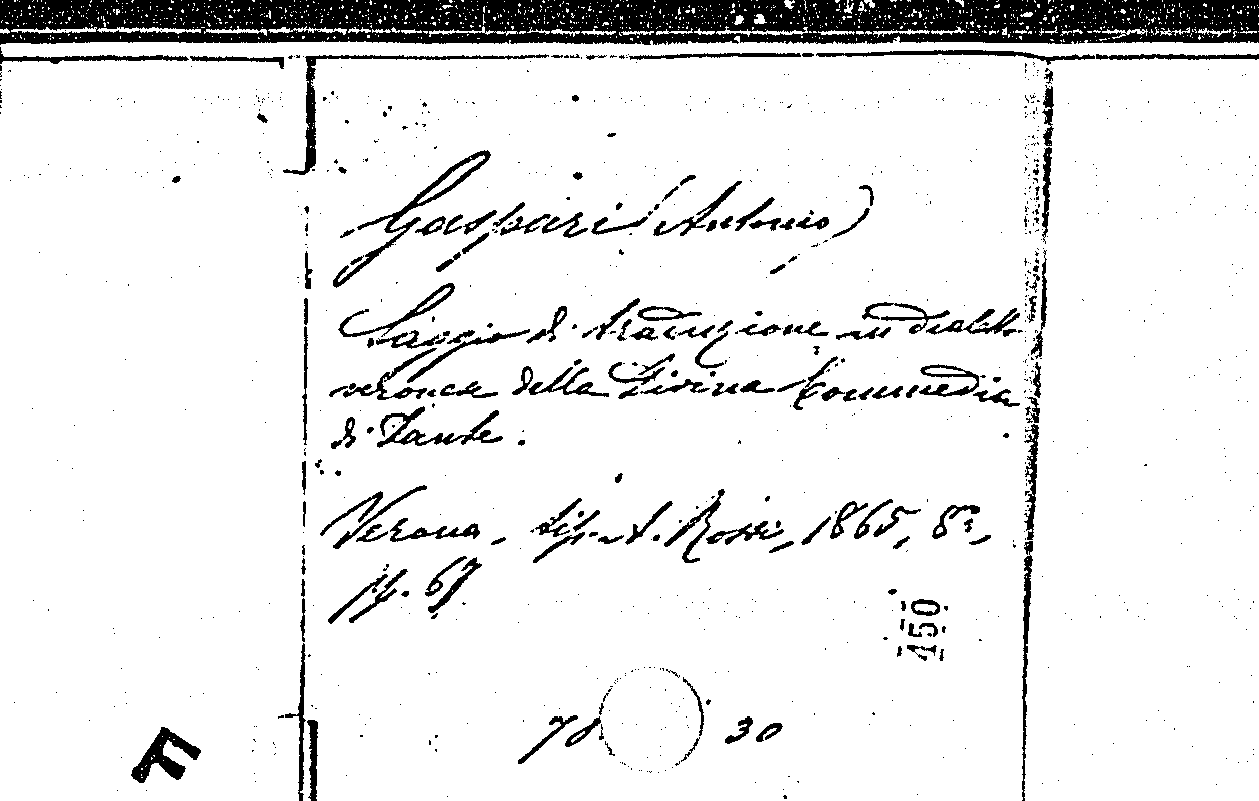 Gaspari (Antonio)
Saggio di traduzione in dialetto
veronese della Divina Commedia
di Dante.
Verona, tip. A. Rossi, 1865, 8º,
pp. 67
450
78 30
F